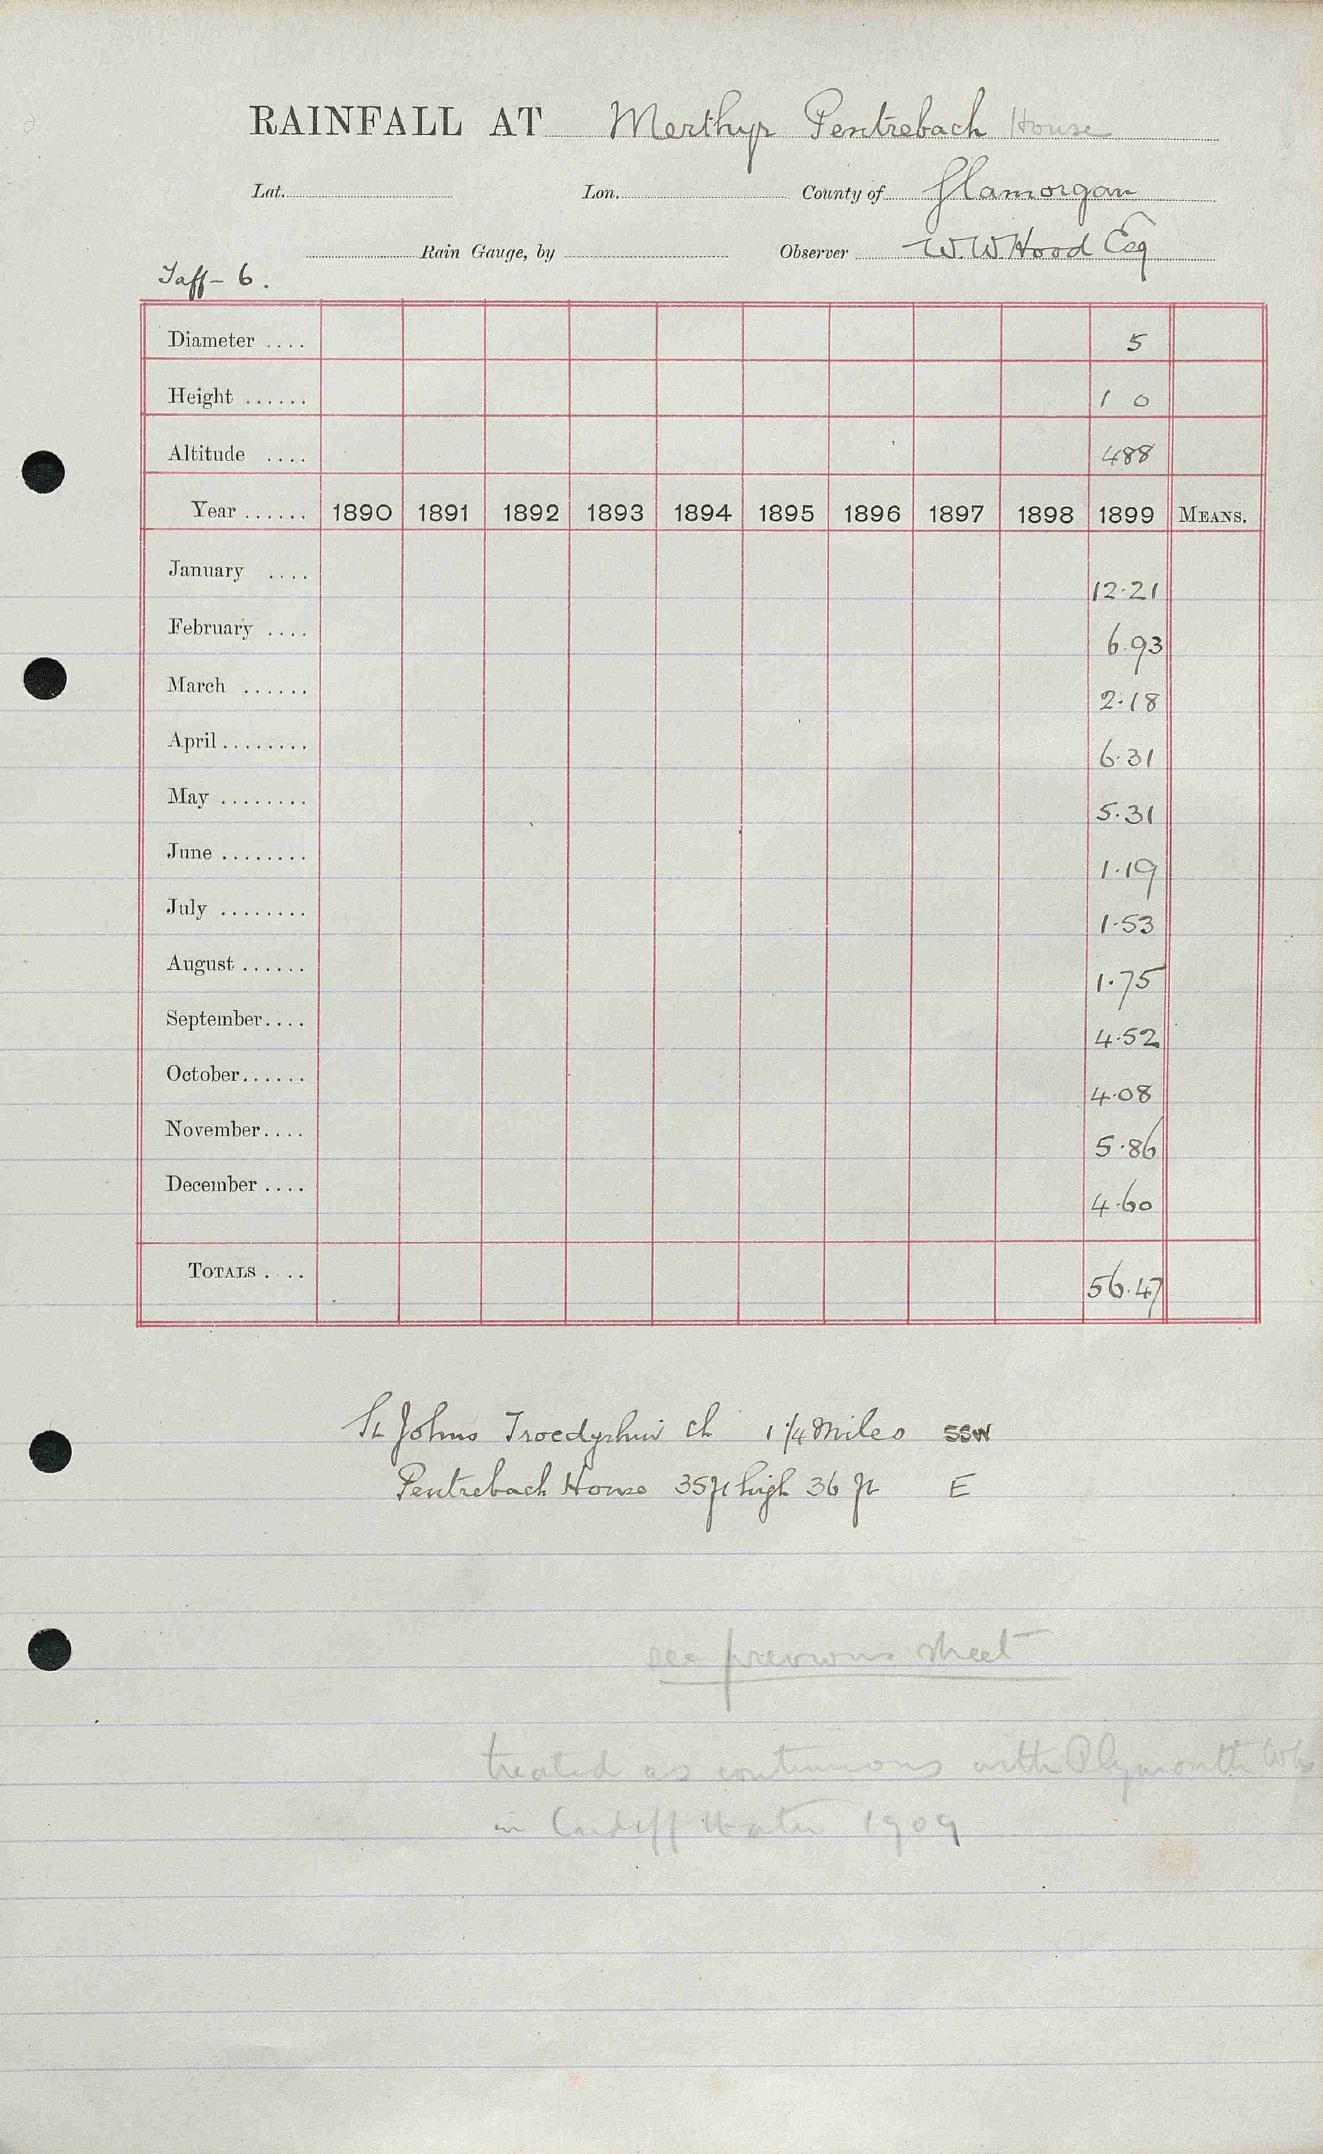 RAINFALL AT Merthyr Pentrebach House
Lat. Lon. County of Glamorgan
Rain Gauge, by Observer W. W Hood Esq
Taff - 6.
Diameter .... 5
Height ...... 1 0
Altitude .... 488
Year ...... 1890 1891 1892 1893 1894 1895 1896 1897 1898 1899 MEANS.
January .... 12.21
February .... 6.93
March ...... 2.18
April ........ 6.31
May ........ 5.31
June ........ 1.19
July ........ 1.53
August ...... 1.75
September.... 4.52
October...... 4.08
November.... 5.86
December .... 4.60
TOTALS .... 56.47
St Johns Troedyrhiw ch 1 1/4 Miles SSW
Pentrebach House 35ft high 36 ft E
see previous sheet
treated as continuous with Plymouth Wks
in Cardiff Water 1909